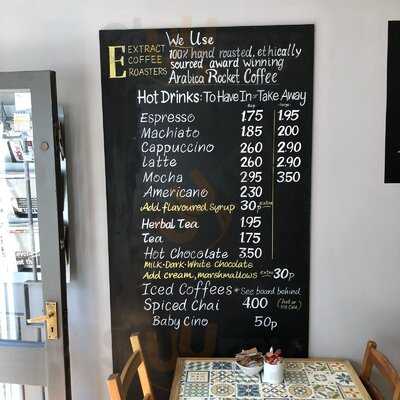 We Use
E EXTRACT COFFEE ROASTERS
100% hand roasted, ethically
sourced award winning
Arabica Rocket Coffee
Hot Drinks: To Have In or Take Away
Espresso 1.75 1.95
Machiato 1.85 2.00
Cappuccino 2.60 2.90
latte 2.60 2.90
Mocha 2.95 3.50
Americano 2.30
Add flavoured syrup 30p extra
Herbal Tea 1.95
Tea 1.75
Hot Chocolate 3.50
Milk-Dark-White Chocolate
Add cream, marshmallows extra 30p
Iced Coffees * See board behind
Spiced Chai 4.00 (Hot or
Iced)
Baby Cino 50p